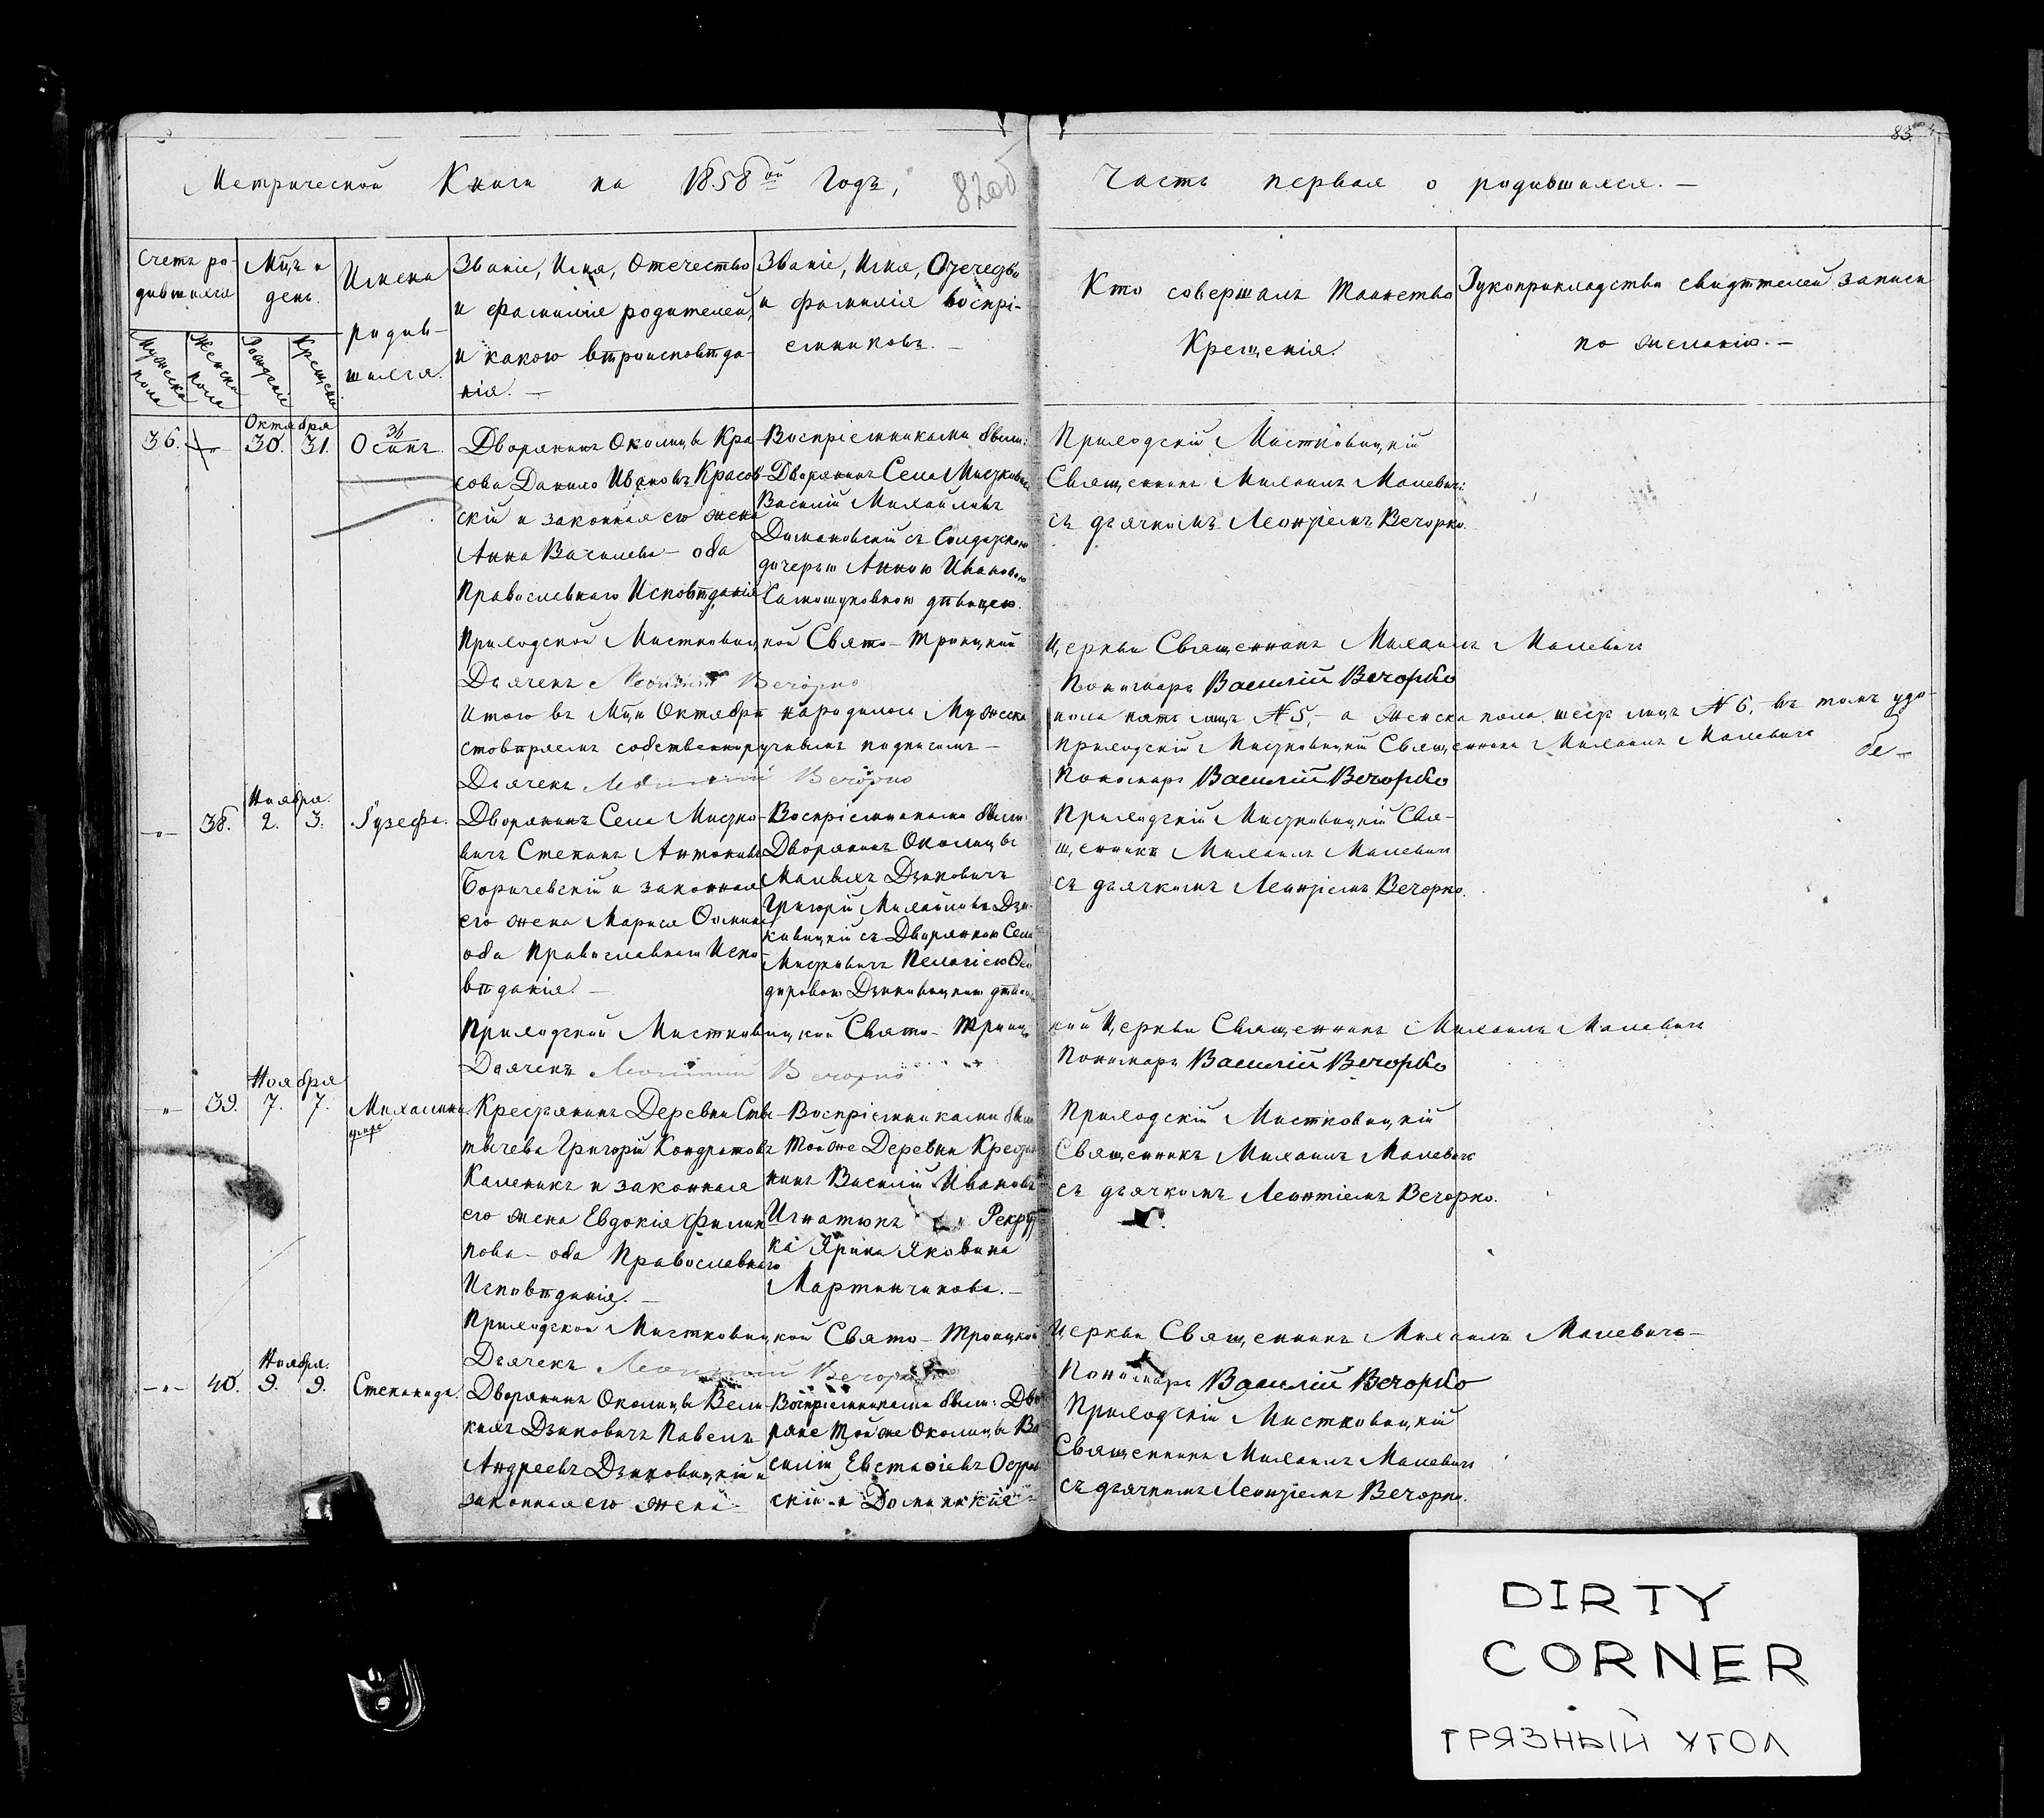 83.
Метрической Книги на 1858ой Годъ,
Часть первая о родившихся. —
Счетъ ро-
дившихся
Мужеска
пола
Женска
пола
Мцъ и
день.
Рожденiя
Крещенiя
Имена
родив-
шихся.
Званiе, Имя, Отечество
и фамилiе родителей,
и какого вѣроисповѣда-
нiя. —
Званiе, Имя, Отечедво
и фамилiя воспрi-
емниковъ. —
Кто совершалъ Таинство
Крещенiя.
Рукоприкладство свидѣтелей записи
по желанiю. —
36.
Октября
30. 31.
Осипъ.
Дворянинъ Околицы Кра-
сова Данило Ивановъ Красов-
скiй и законная его жена
Анна Васильева — оба
Православнаго Исповѣданiя
Воспрiемниками были:
Дворянинъ Села Мисткович
Василiй Михайловъ
Домановскiй съ Солдатскою
дочерью Анною Ивановою
дѣвицею.
Приходскiй Мистковицкiй
Священникъ Михаилъ Малевичъ
съ дьячкомъ Леонтiемъ Вечорко.
Приходской Мистковицкой Свято-Троицкой Церкви Священникъ Михаилъ Малевичъ
Дьячекъ Леонтiй Вечорко
Пономарь Василiй Вечорко
Итого въ Мцѣ Октябри народилось Мужеска пола пять лицъ №5, — а Женска пола шесть лицъ №6, въ томъ удо-
стовѣряемъ собственноручнымъ подписомъ — Приходскiй Мистковицкiй Священникъ Михаилъ Малевичъ
Дьячекъ Леонтiй Вечорко
Пономарь Василiй Вечорко
38.
Ноября.
2. 3.
Iузефа.
Дворянинъ Села Мистко-
вичъ Степанъ Антоновъ
Боричевскiй и законная
его жена Марiя Осипова
оба Православнаго Испо-
вѣданiя. —
Воспрiемниками были:
Дворянинъ Околицы
Малыхъ Дзиковичъ
Григорiй Михайловъ Дзи-
ковицкiй съ Дворянкою Села
Мистковичъ Пелагiею Фео-
доровою Дзиковицкою дѣвицею
Приходскiй Мистковицкiй Свя-
щенникъ Михаилъ Малевичъ
съ дьячкомъ Леонтiемъ Вечорко.
Приходской Мистковицкой Свято-Троицкой Церкви Священникъ Михаилъ Малевичъ
Дьячекъ Леонтiй Вечорко
Пономарь Василiй Вечорко
39.
Ноября
7. 7.
Михалина
Крестянинъ Деревни
Григорiй Кондратовъ
Каленикъ и законная
его жена Евдокiя Филип-
пова — оба Православнаго
Исповѣданiя. —
Воспрiемниками были
Той же Деревни Крестя-
нинъ Василiй Ивановъ
Игнатюкъ Рекрут-
ка Ярина Яковина
Мартинчикова. —
Приходскiй Мистковицкiй
Священникъ Михаилъ Малевичъ
съ дьячкомъ Леонтiемъ Вечорко.
Приходской Мистковицкой Свято-Троицкой Церкви Священникъ Михаилъ Малевичъ —
Дьячекъ Леонтiй Вечорко
Пономарь Василiй Вечорко
40.
Ноября.
9. 9.
Степанида.
Дворянинъ Околицы Вели-
кихъ Дзиковичъ Павелъ
Андреевъ Дзиковицкiй и
законная его жена
Воспрiемниками были: Дво-
ряне Той же Околицы Ва-
силiй Евстафiевъ Остров-
скiй и Доминикiя
Приходскiй Мистковицкiй
Священникъ Михаилъ Малевичъ
съ дьячкомъ Леонтiемъ Вечорко.
DIRTY
CORNER
ГРЯЗНЫЙ УГОЛ